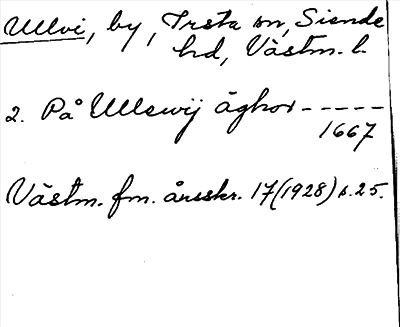 Ullvi, by, Irsta sn, Siende
hd, Västm. l.
2. På Ullewij äghor - - - - -
1667
Västm. fm. årsskr. 17 (1928) s. 25.